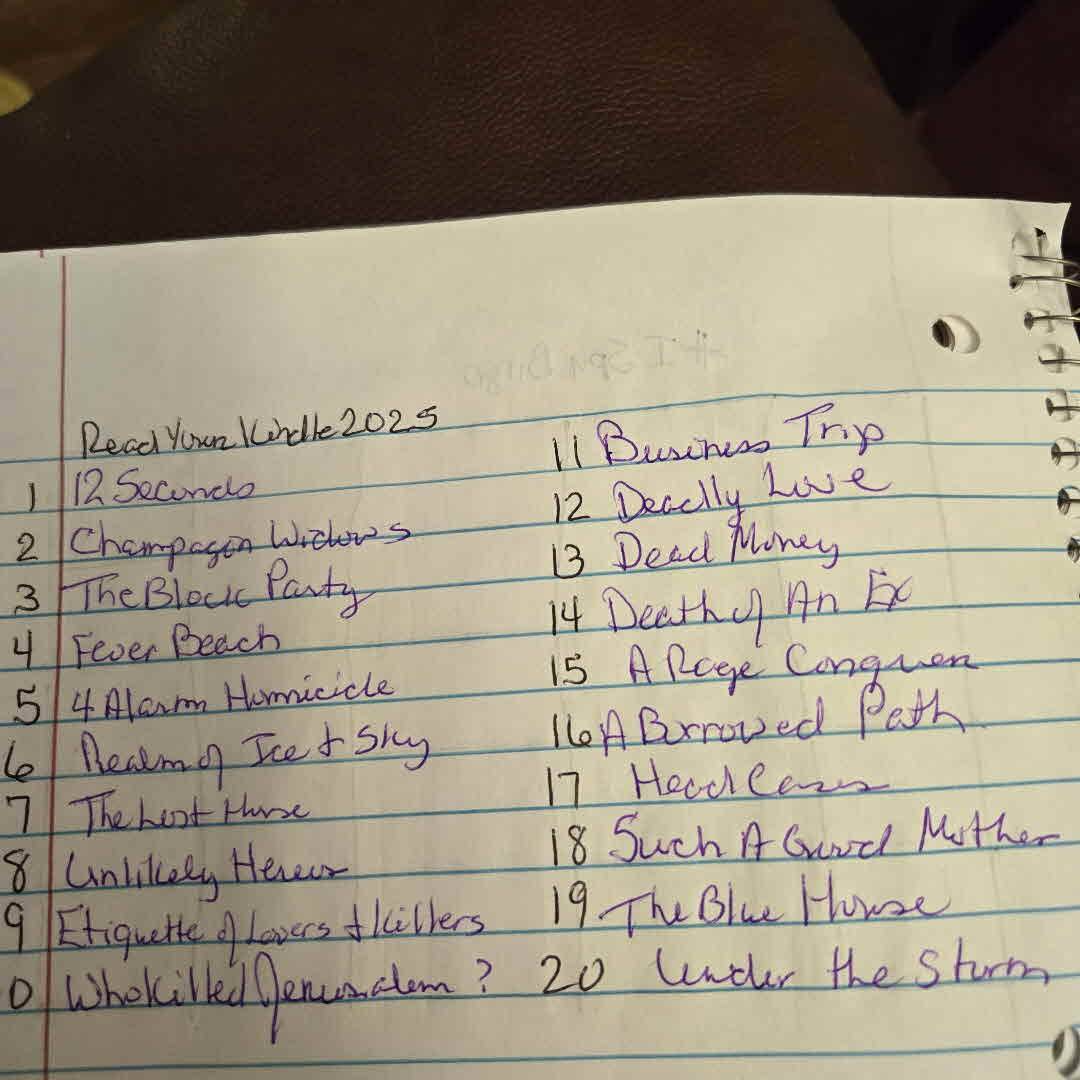 # I Spy Bingo
Read Your Kindle 2025
1 12 Seconds
2 Champagen Widows
3 The Block Party
4 Fever Beach
5 4 Alarm Homicide
6 Realm of Ice + Sky
7 The Lost House
8 Unlikely Heroes
9 Etiquette of Lovers + Killers
0 Who Killed Jerusalem ?
11 Business Trip
12 Deadly Love
13 Dead Money
14 Death of An Ex
15 A Rage Conquer
16 A Borrowed Path
17 Head Cases
18 Such A Good Mother
19 The Blue House
20 Under the Storm